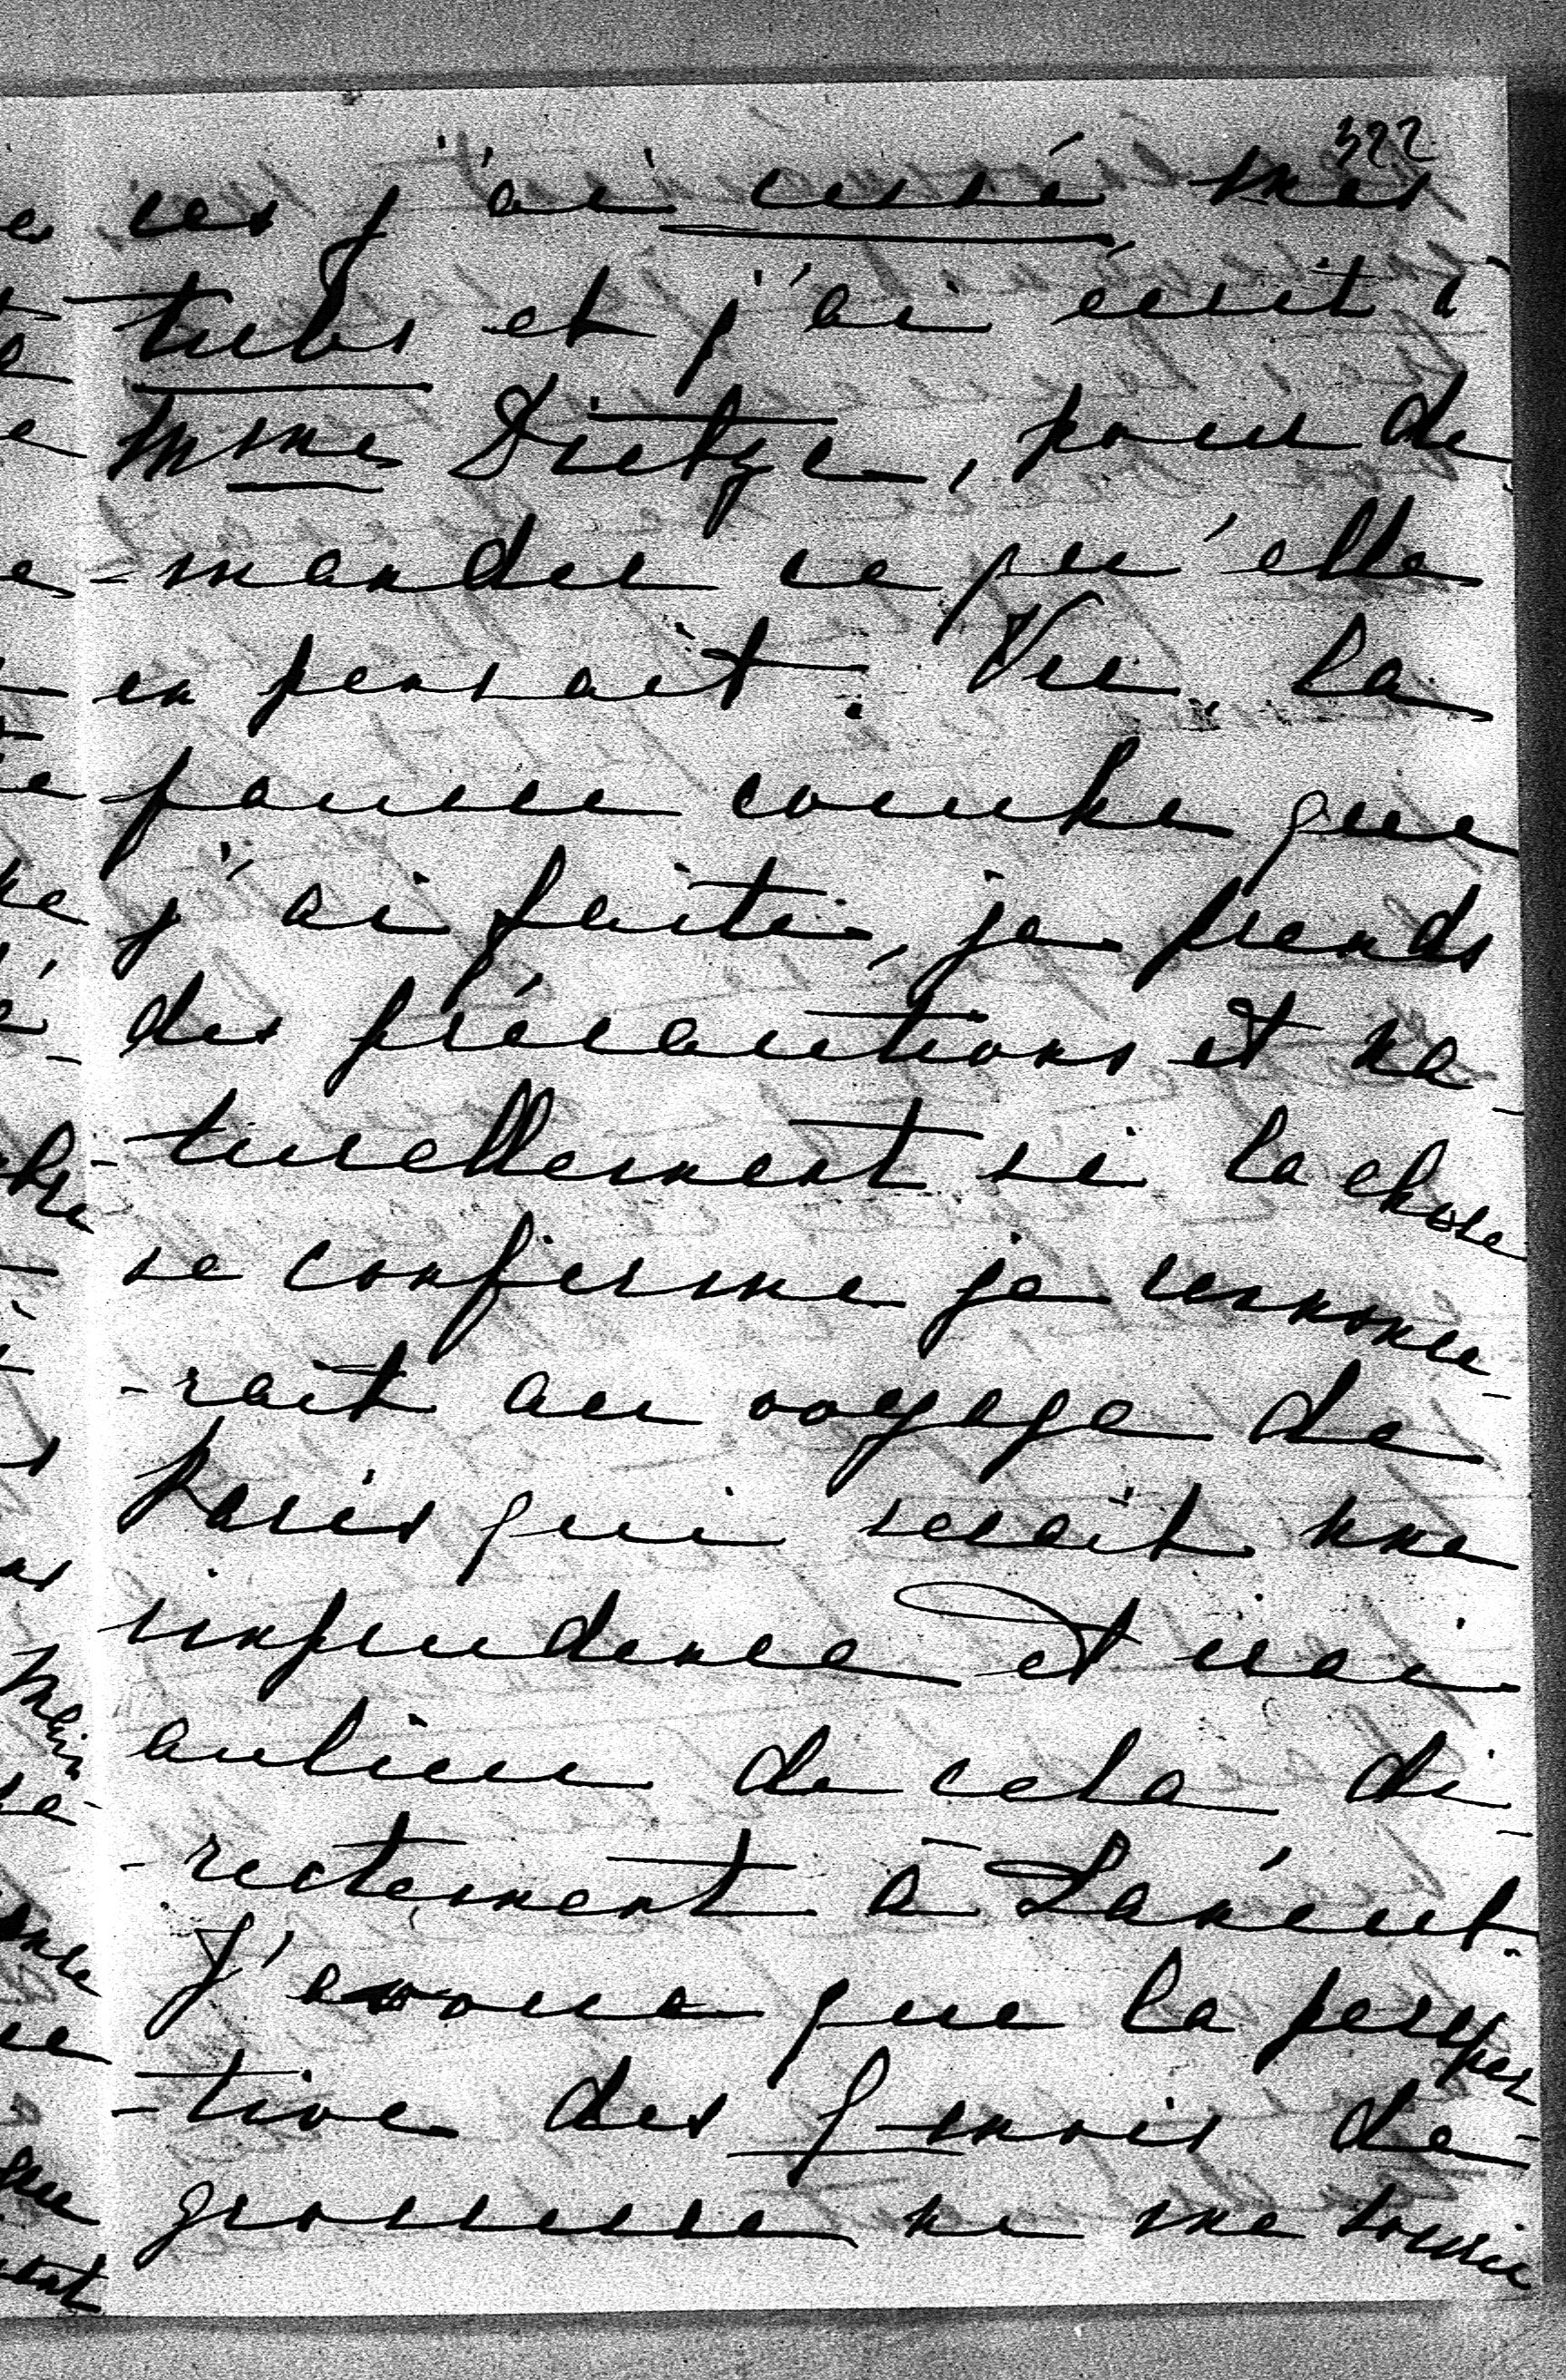 322
ces j'ai cessé mes
tubs et j'ai écrit à
Mme Dietze, pour de
-mander ce qu'elle
en pensait. Vu la
fausse couche que
j'ai faite, je prends
des précautions et na-
-turellement si la chose
se confirme je renonce-
-rait au voyage de
Paris qui serait une
imprudence et irai
aulieu de cela di-
-rectement à
J'avoue que la perspec
-tive des 9 mois de
grossesse ne me sourie